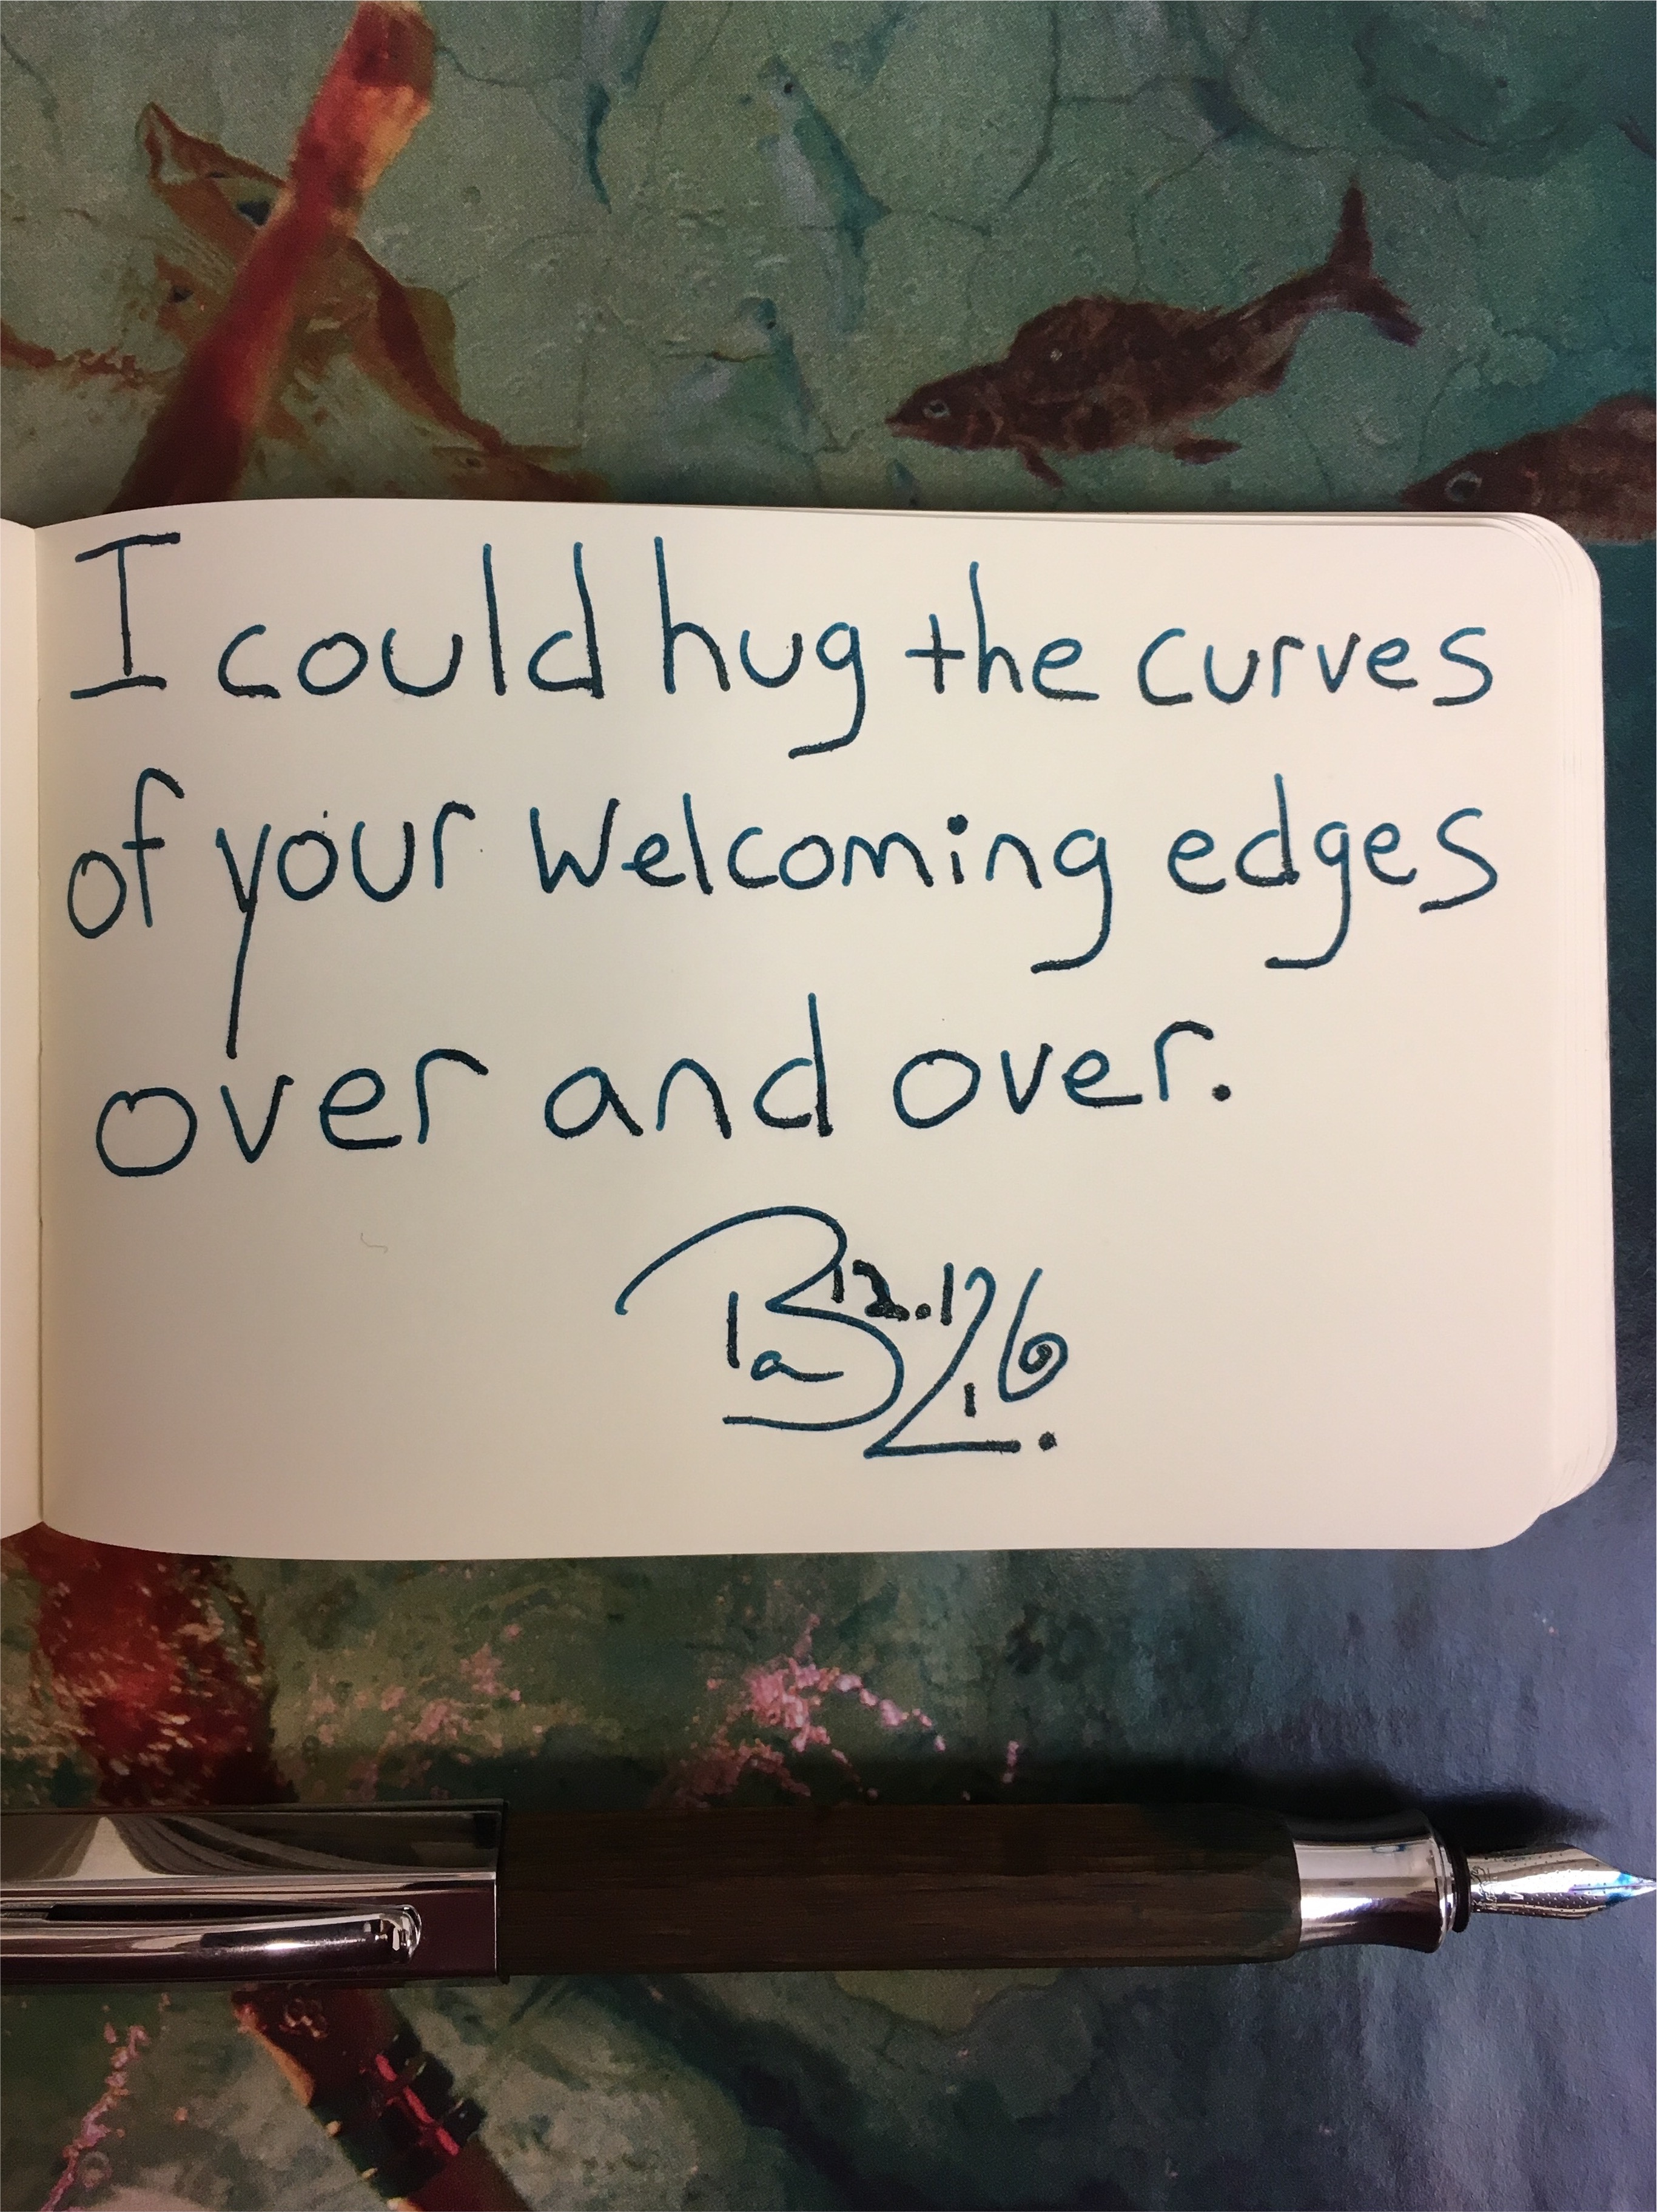 I could hug the curves
of your welcoming edges
over and over.